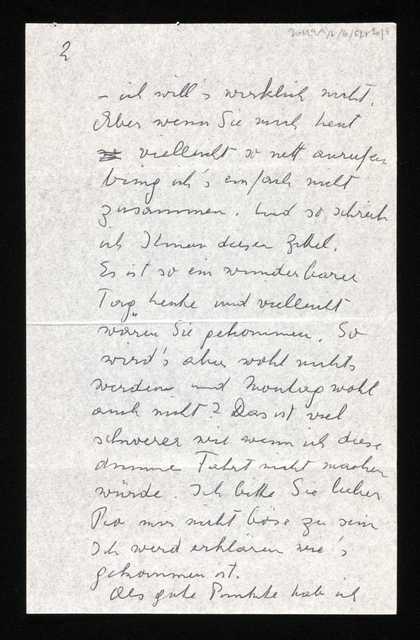 2
– ich will's wirklich nicht.
Aber wenn Sie mich heut
vielleicht so nett anrufen
bring ich's einfach nicht
zusammen. Und so schreib
ich Ihnen diesen Zettel.
Es ist so ein wunderbarer
Tag heute und vielleicht
wären Sie gekommen. So
wird's aber wohl nichts
werden und Montag wohl
auch nicht? Das ist viel
schwerer wie wenn ich diese
dumme Fahrt nicht machen
würde. Ich bitte Sie lieber
mir nicht böse zu sein
Ich werd erklären wie's
gekommen ist.
Als gute Punkte hab ich